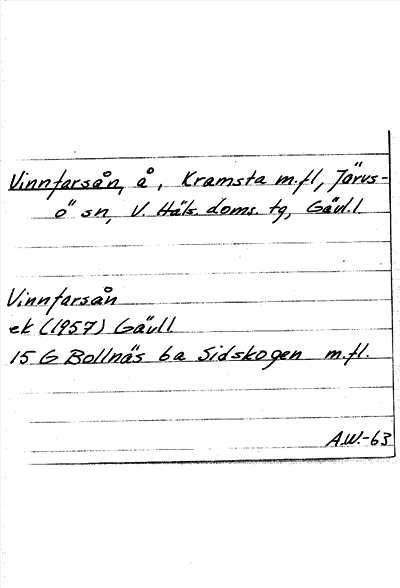 Vinnfarsån, å, Kramsta m.fl, Järvs-
ö sn, V. Häls. doms. tg, Gävl.l.
Vinnfarsån
ek (1957) Gävll
15 G Bollnäs 6a Sidskogen m.fl.
A.W.-63